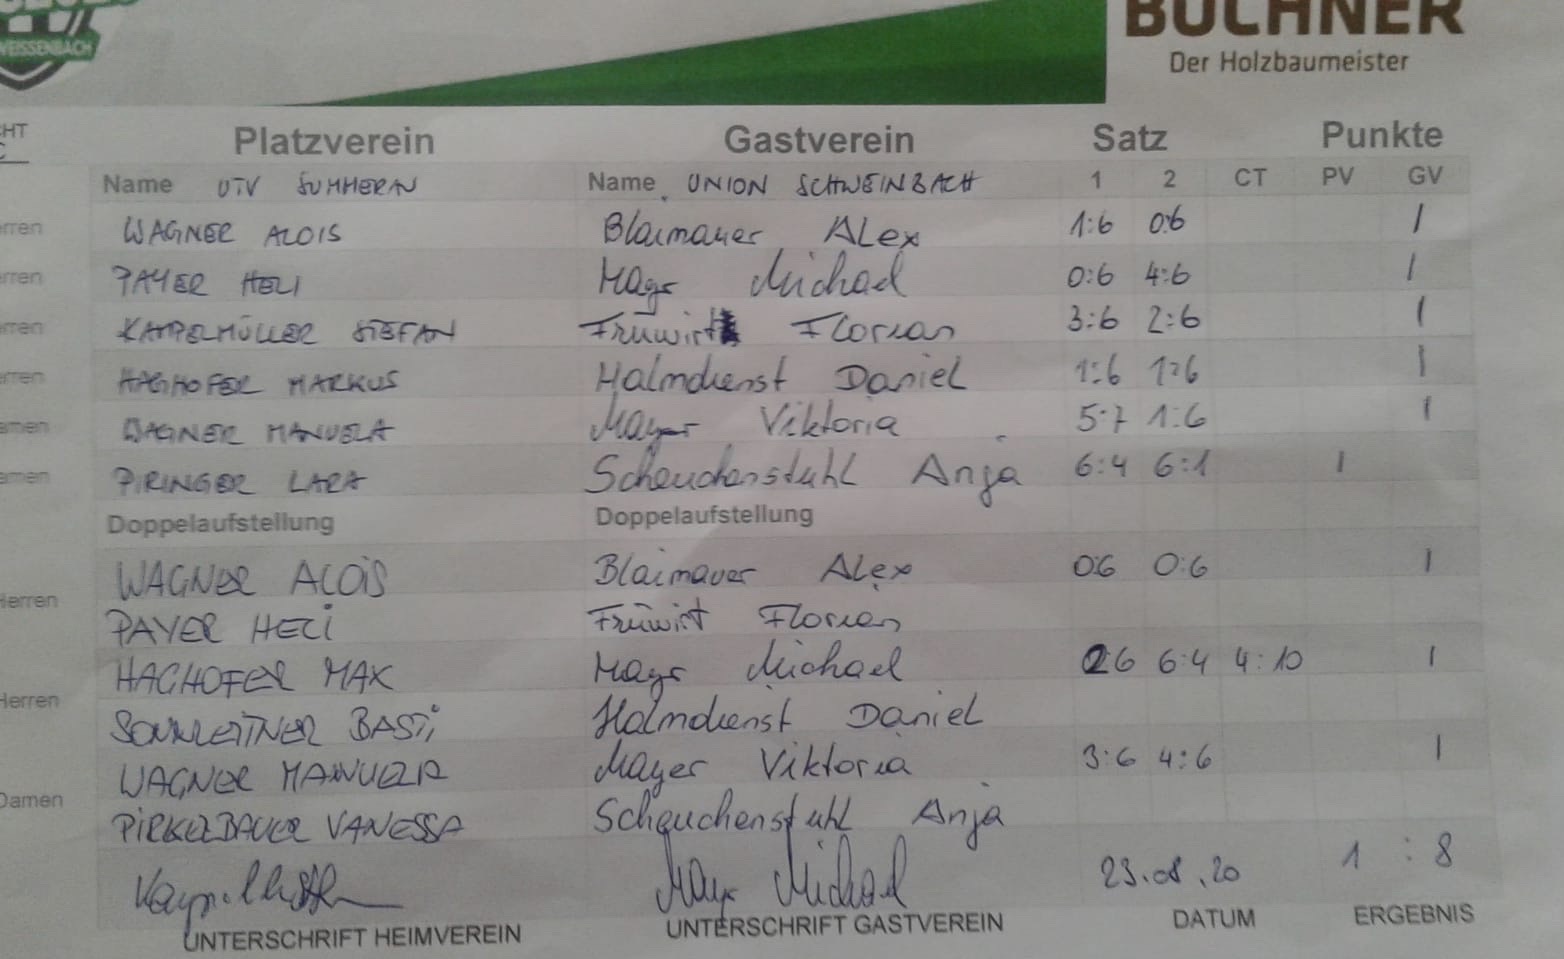 WEISSENBACH
BUCHNER
Der Holzbaumeister
Platzverein Gastverein Satz Punkte
Name UTV SUMMERAU Name UNION SCHWEINBACH 1 2 CT PV GV
WAGNER ALOIS Blaimauer Alex 1:6 0:6 1
PAYER HELI Mayr Michael 0:6 4:6 1
KAPPELMÜLLER STEFAN Früwirt Florian 3:6 2:6 1
HAGHOFER MARKUS Halmdienst Daniel 1:6 1:6 1
WAGNER MANUELA Mayer Viktoria 5:7 1:6 1
PIRINGER LARA Scheuchenstuhl Anja 6:4 6:1 1
Doppelaufstellung Doppelaufstellung
WAGNER ALOIS Blaimauer Alex 0:6 0:6 1
Herren
PAYER HELI Früwirt Florian
HAGHOFER MAX Mayr Michael 2:6 6:4 4:10 1
Herren
SONNLEITNER BASTI Halmdienst Daniel
WAGNER MANUELA Mayer Viktoria 3:6 4:6 1
Damen
PIRKLBAUER VANESSA Scheuchenstuhl Anja
Mayr Michael 23.08.20 1 : 8
UNTERSCHRIFT HEIMVEREIN UNTERSCHRIFT GASTVEREIN DATUM ERGEBNIS